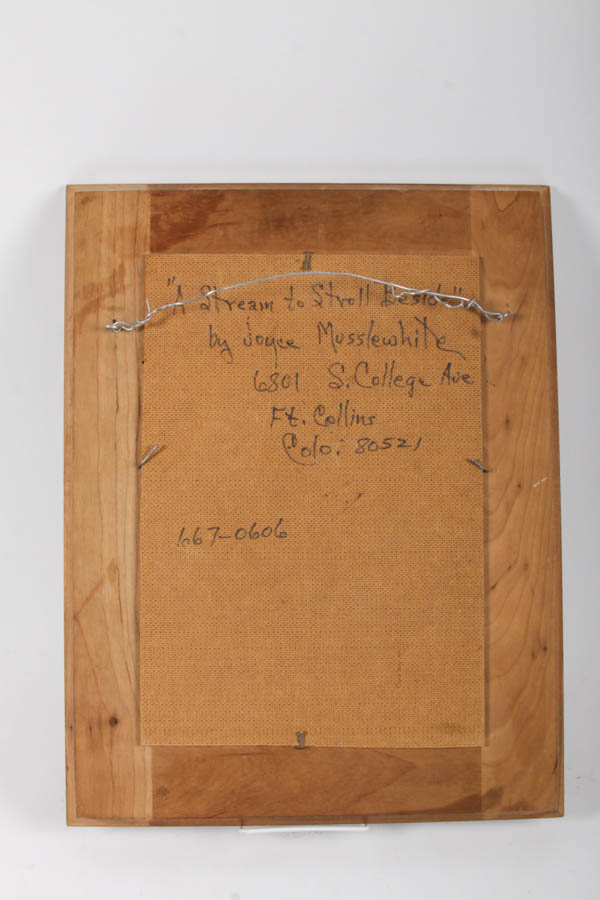 "A Stream to Stroll Beside"
by Joyce Musslewhite
6801 S. College Ave
Ft. Collins
Colo: 80521
667-0606